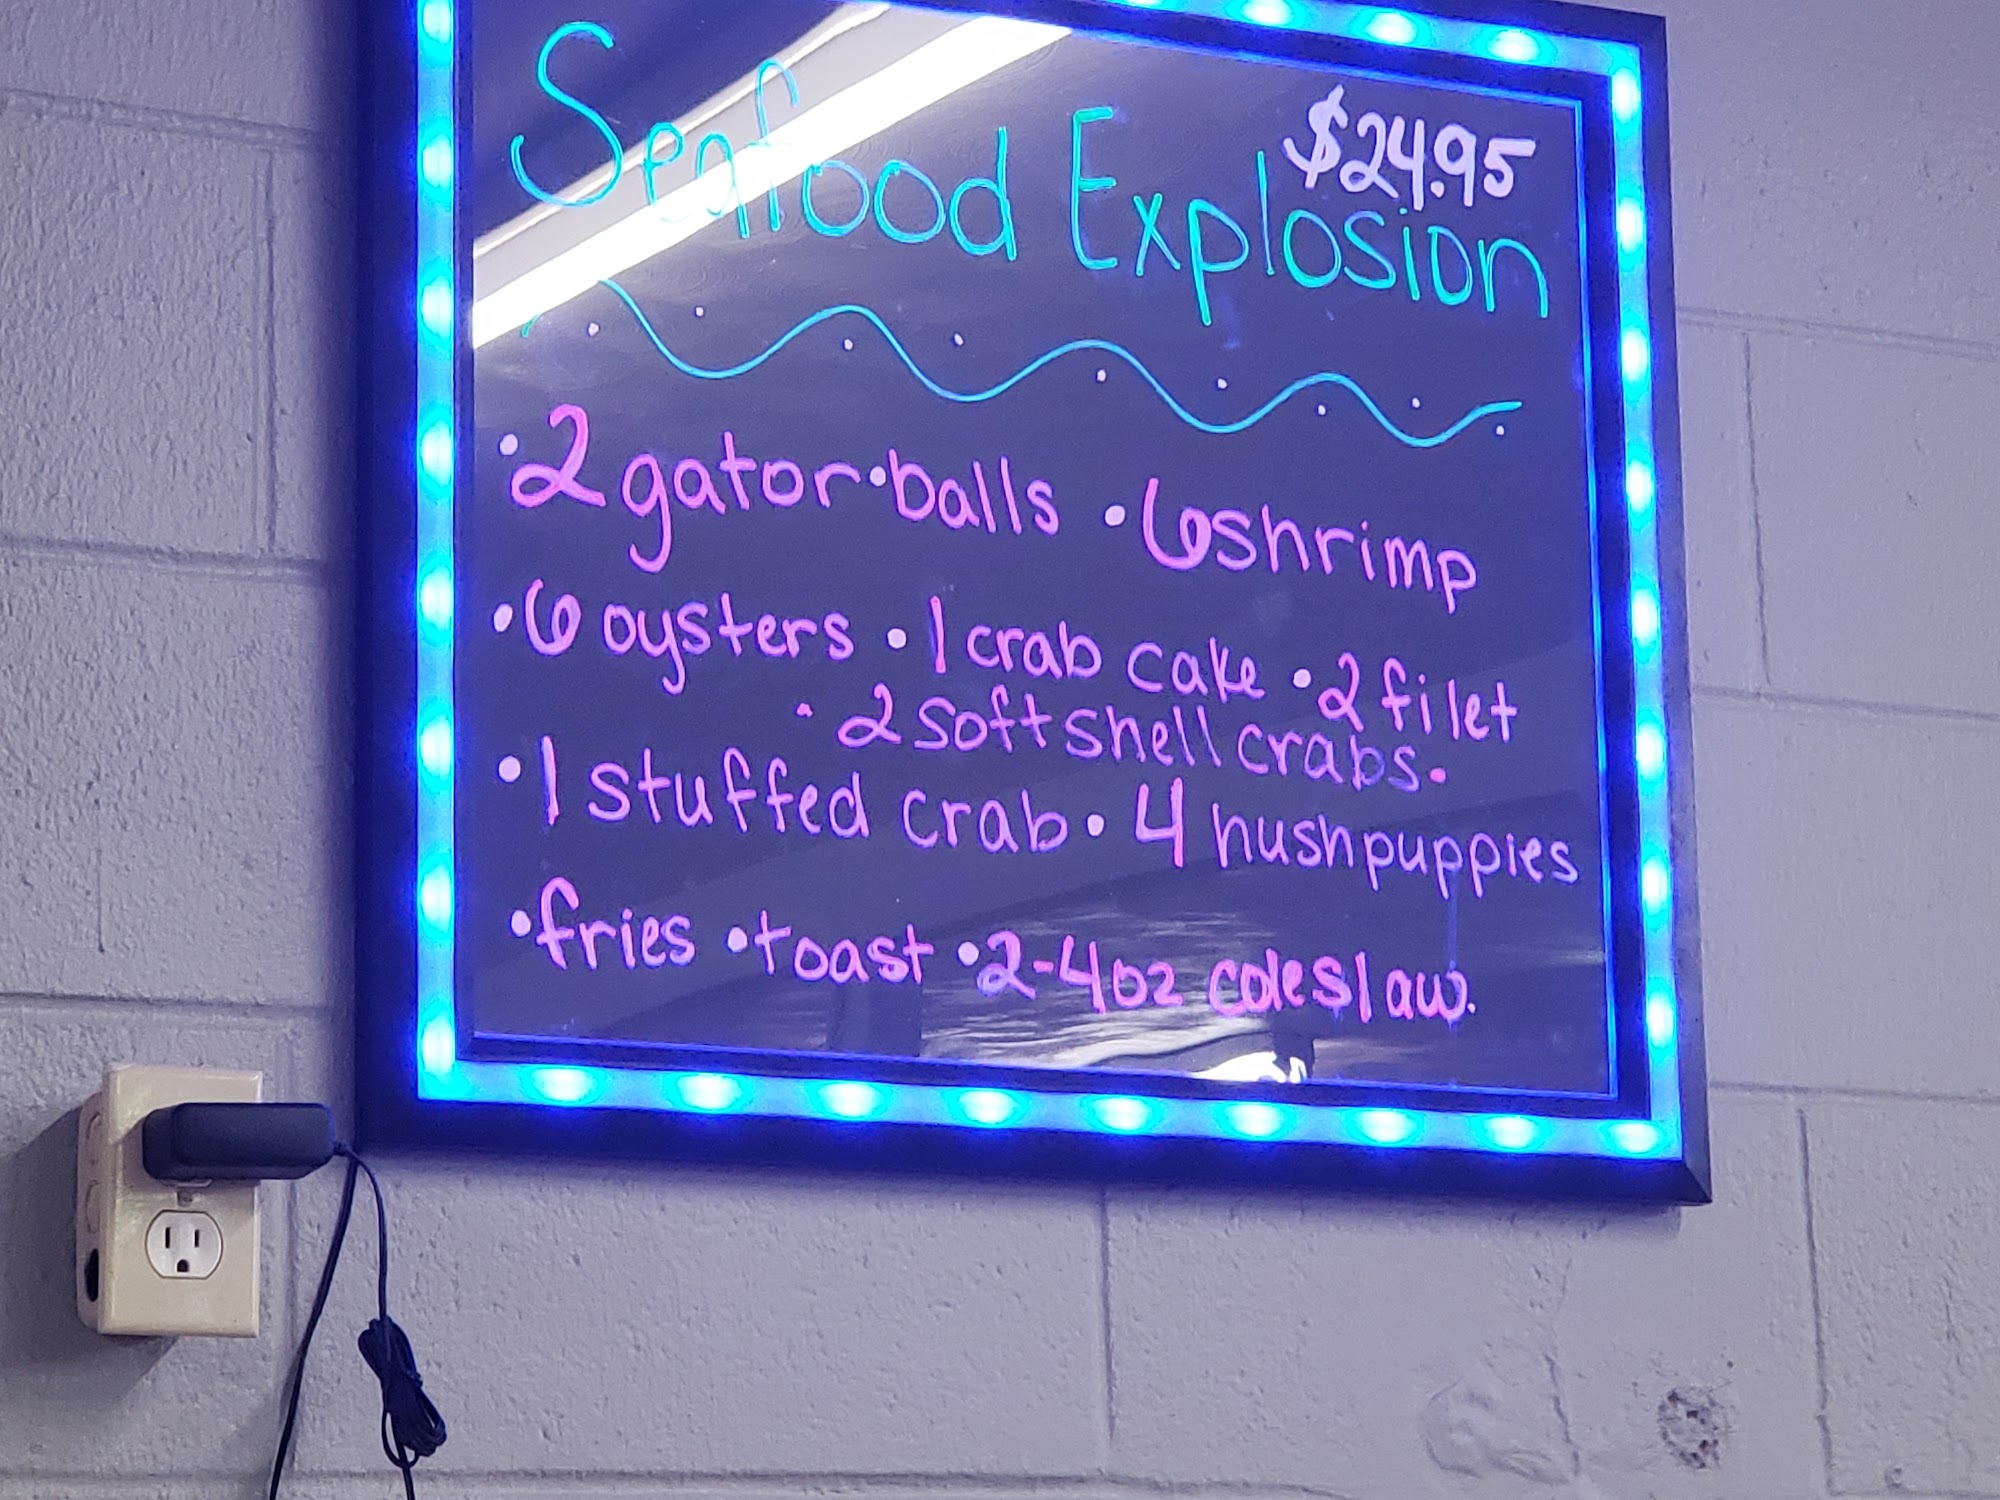 $24.95
Seafood Explosion
•2 gator•balls •6 shrimp
•6 oysters •1 crab cake •2 filet
•2 soft shell crabs•
•1 stuffed crab •4 hushpuppies
•fries •toast •2-4oz coleslaw.